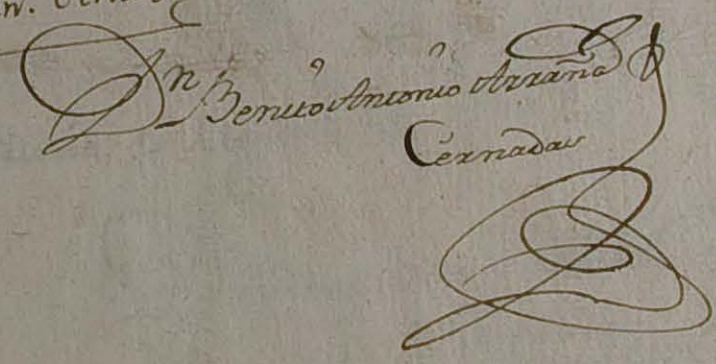 Dn Benito Antonio Arraña y
Cernadas